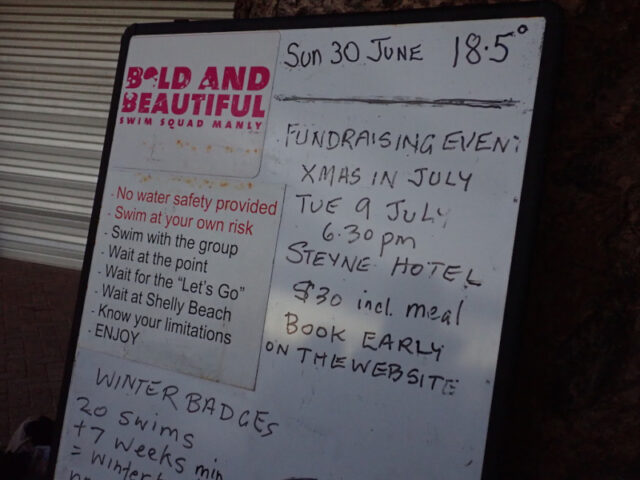 BOLD AND
BEAUTIFUL
SWIM SQUAD MANLY
- No water safety provided
- Swim at your own risk
- Swim with the group
- Wait at the point
- Wait for the "Let's Go"
- Wait at Shelly Beach
- Know your limitations
- ENJOY
SUN 30 JUNE 18.5°
FUNDRAISING EVENT
XMAS IN JULY
TUE 9 JULY
6.30pm
STEYNE HOTEL
$30 incl. meal
BOOK EARLY
ON THE WEBSITE
WINTER BADGES
20 SWIMS
+7 weeks min
=